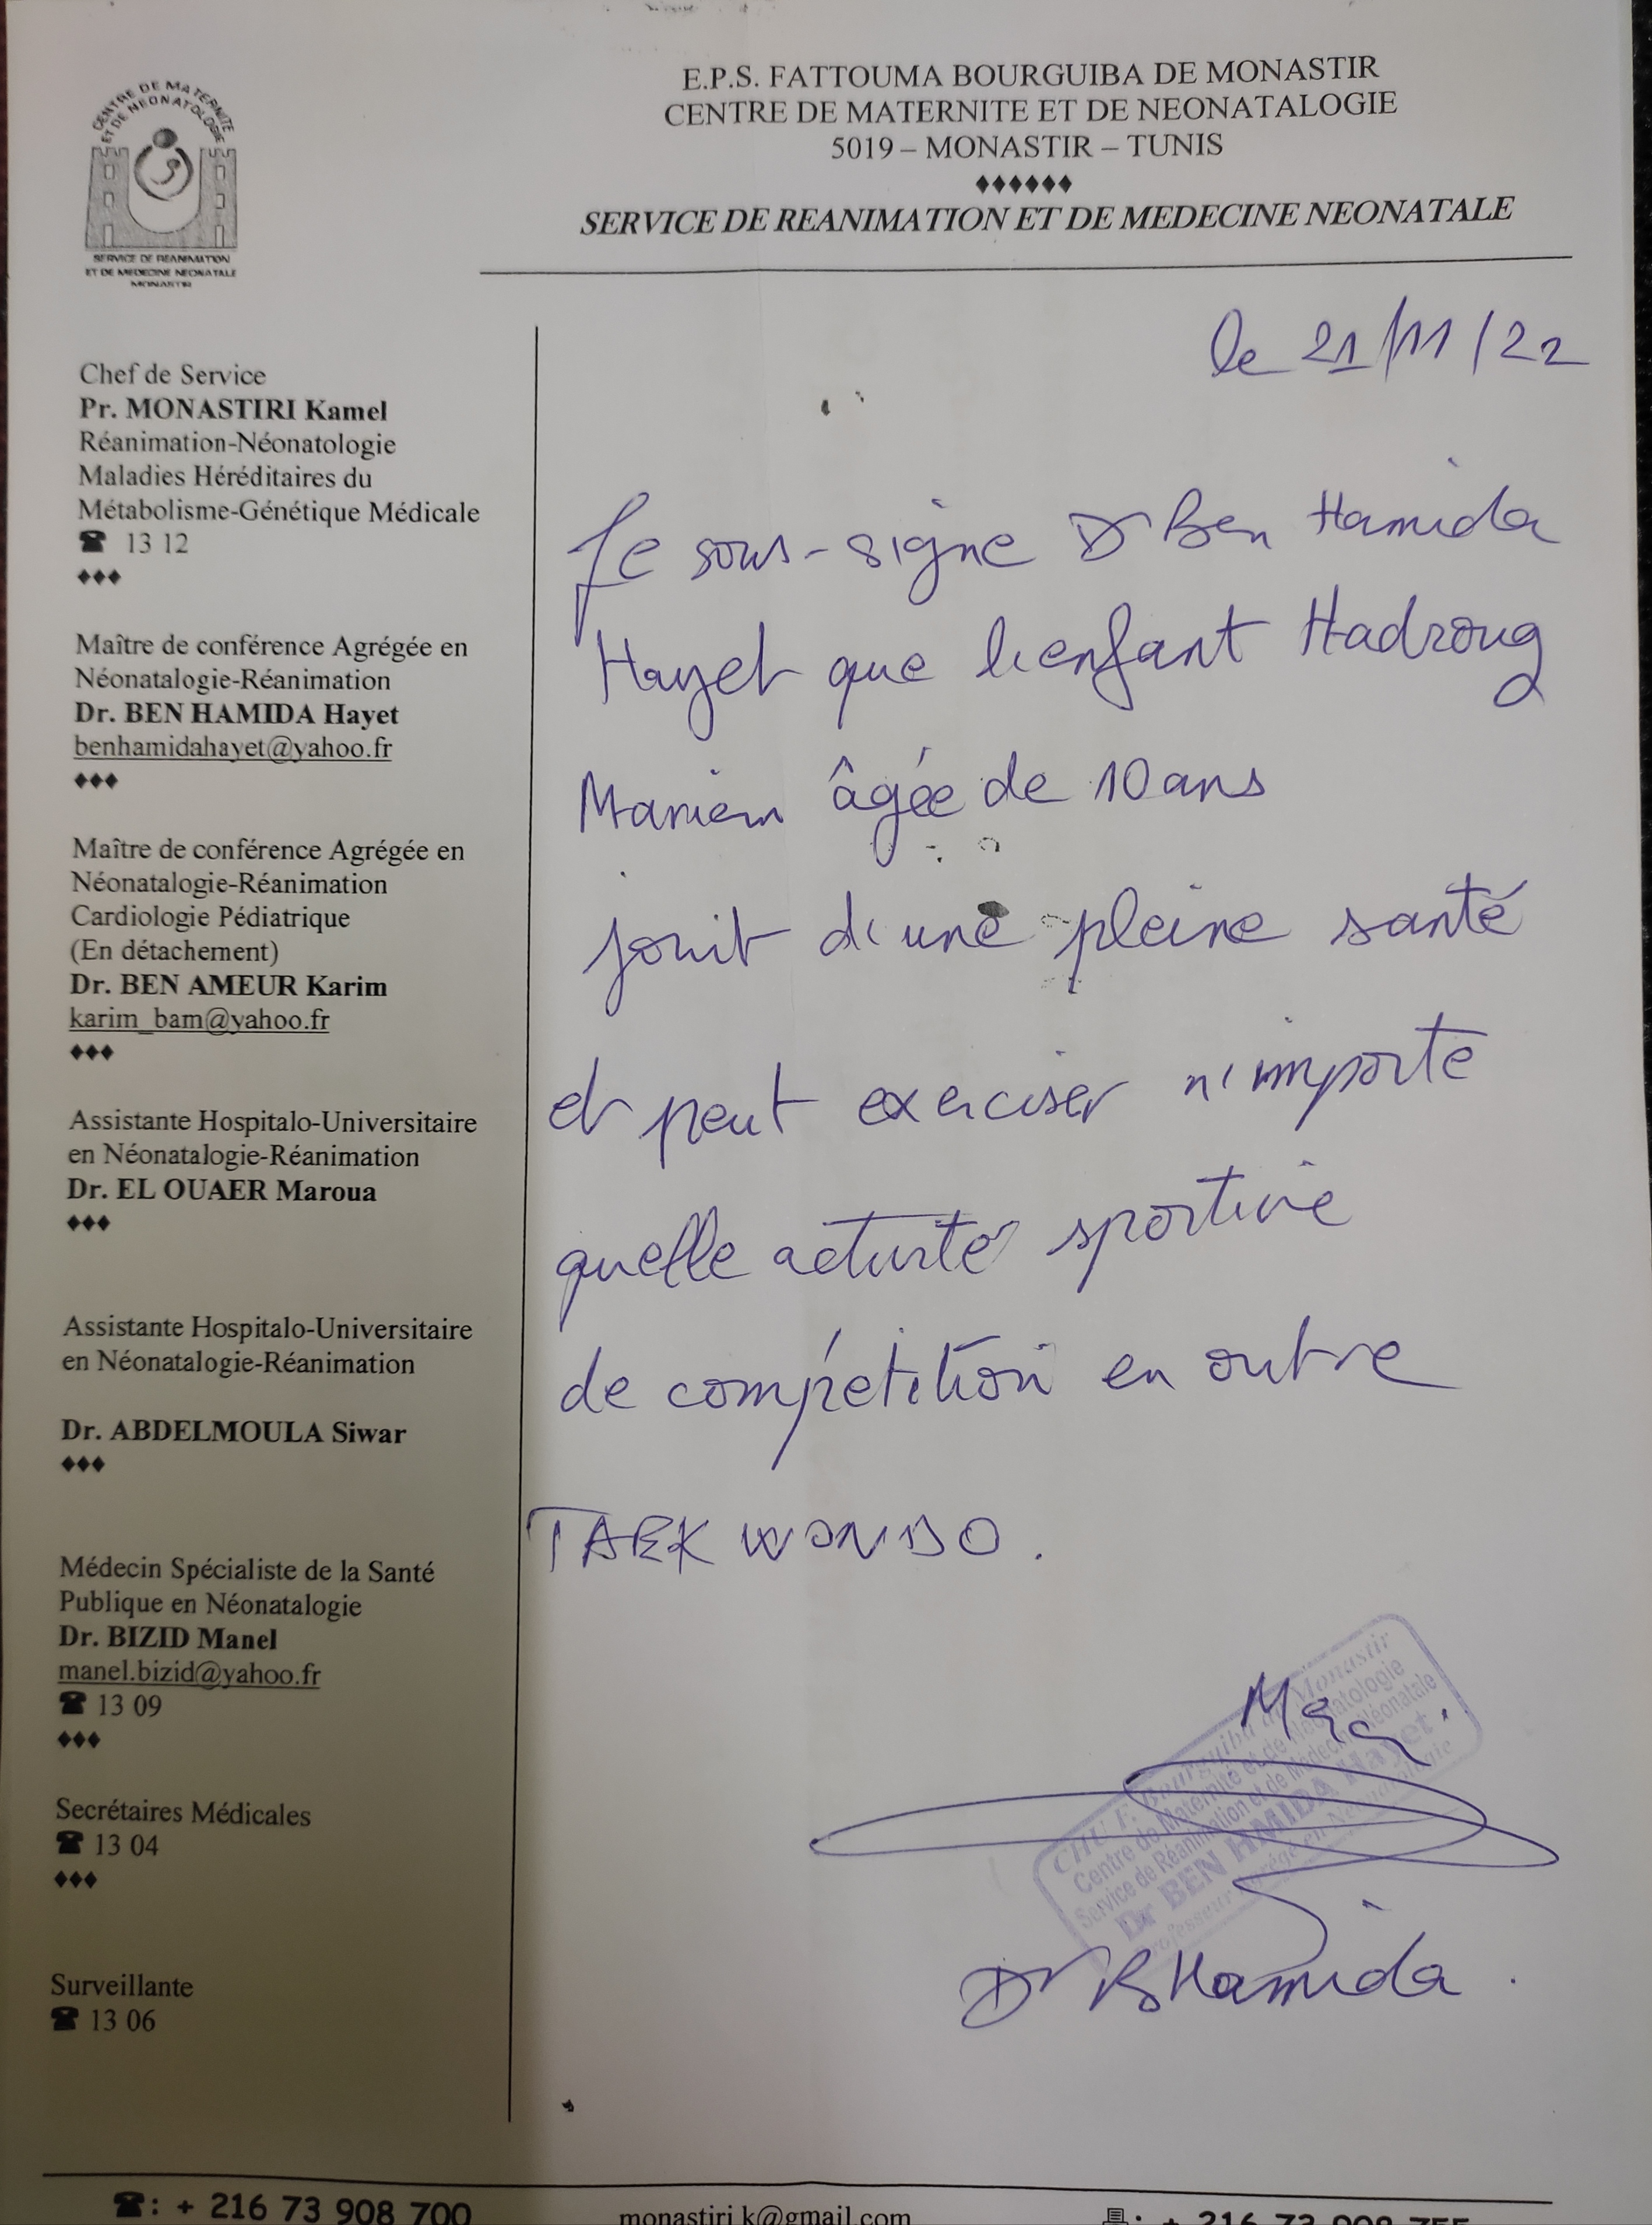 CENTRE DE MATERNITE
ET DE NEONATOLOGIE
SERVICE DE REANIMATION
ET DE MEDECINE NEONATALE
MONASTIR
E.P.S. FATTOUMA BOURGUIBA DE MONASTIR
CENTRE DE MATERNITE ET DE NEONATALOGIE
5019 – MONASTIR – TUNIS
♦♦♦♦♦♦
SERVICE DE REANIMATION ET DE MEDECINE NEONATALE
Chef de Service
Pr. MONASTIRI Kamel
Réanimation-Néonatologie
Maladies Héréditaires du
Métabolisme-Génétique Médicale
☎ 13 12
♦♦♦
Maître de conférence Agrégée en
Néonatalogie-Réanimation
Dr. BEN HAMIDA Hayet
benhamidahayet@yahoo.fr
♦♦♦
Maître de conférence Agrégée en
Néonatalogie-Réanimation
Cardiologie Pédiatrique
(En détachement)
Dr. BEN AMEUR Karim
karim_bam@yahoo.fr
♦♦♦
Assistante Hospitalo-Universitaire
en Néonatalogie-Réanimation
Dr. EL OUAER Maroua
♦♦♦
Assistante Hospitalo-Universitaire
en Néonatalogie-Réanimation
Dr. ABDELMOULA Siwar
♦♦♦
Médecin Spécialiste de la Santé
Publique en Néonatalogie
Dr. BIZID Manel
manel.bizid@yahoo.fr
☎ 13 09
♦♦♦
Secrétaires Médicales
☎ 13 04
♦♦♦
Surveillante
☎ 13 06
le 21/11/22
Je sous-signe Dr Ben Hamida
Hayet que l'enfant Hadroug
Mariem âgée de 10 ans
jouit d'une pleine santé
et peut exerciser n'importe
quelle activité sportive
de compétition en outre
TAEK WONDO.
CHU F. Bourguiba de Monastir
Centre de Maternité et de Néonatologie
Service de Réanimation et de Médecine Néonatale
Dr BEN HMIDA Hayet
Professeur Agrégé en Néonatologie
Dr B Hamida.
☎: + 216 73 908 700
monastiri.k@gmail.com
: + 216 73 908 755